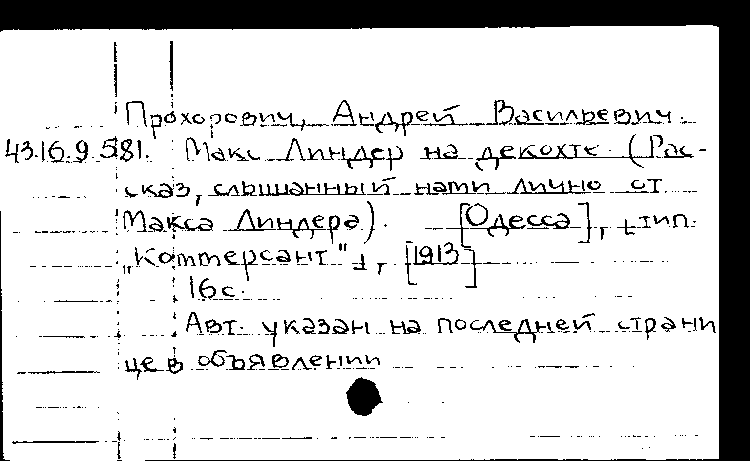 Прохорович, Андрей Васильевич.
43.16.9.581. Макс Линдер на декохте. (Рас-
сказ, слышанный нами лично от
Макса Линдера). [Одесса], [тип.
„Коммерсант"], [1913]
16 с.
Авт. указан на последней страни
це в объявлении